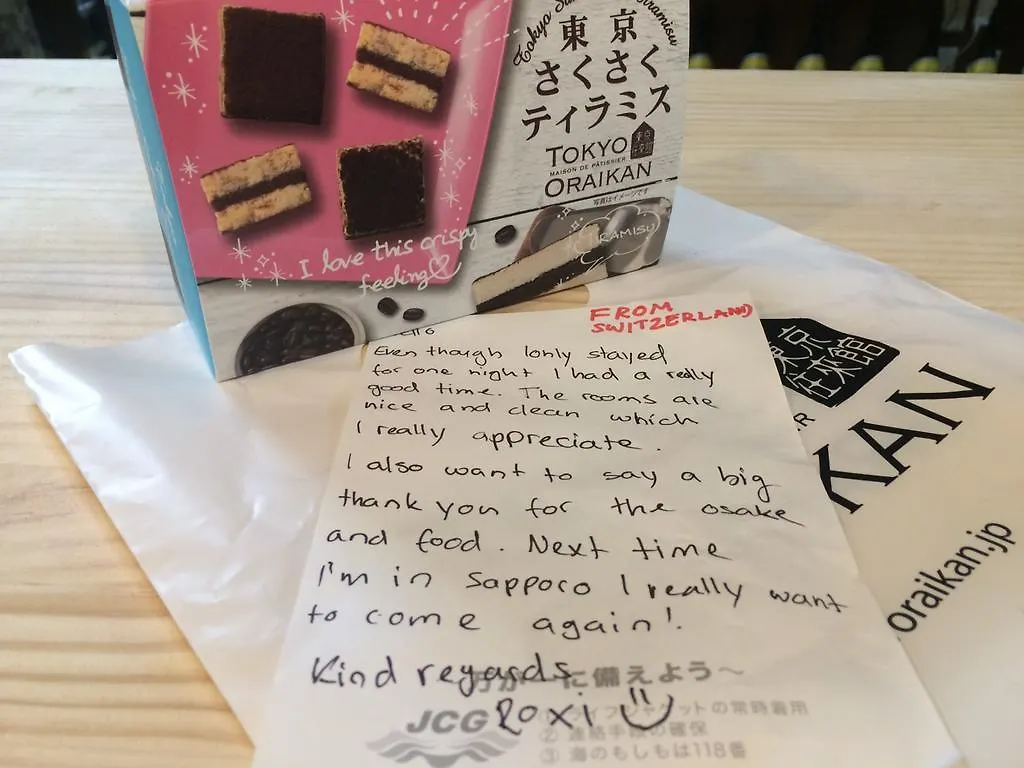 東京
さくさく
ティラミス
TOKYO
MAISON DE PÂTISSIER
ORAIKAN
写真はイメージです
TIRAMISU
I love this crispy
feeling
FROM
SWITZERLAND
Even though I only stayed
for one night I had a really
good time. The rooms are
nice and clean which
I really appreciate.
I also want to say a big
thank you for the osake
and food. Next time
I'm in Sapporo I really want
to come again!
Kind regards
Roxi
に備えよう～
JCG
① ライフジャケットの常時着用
② 連絡手段の確保
③ 海のもしもは118番
東京
往来館
KAN
oraikan.jp